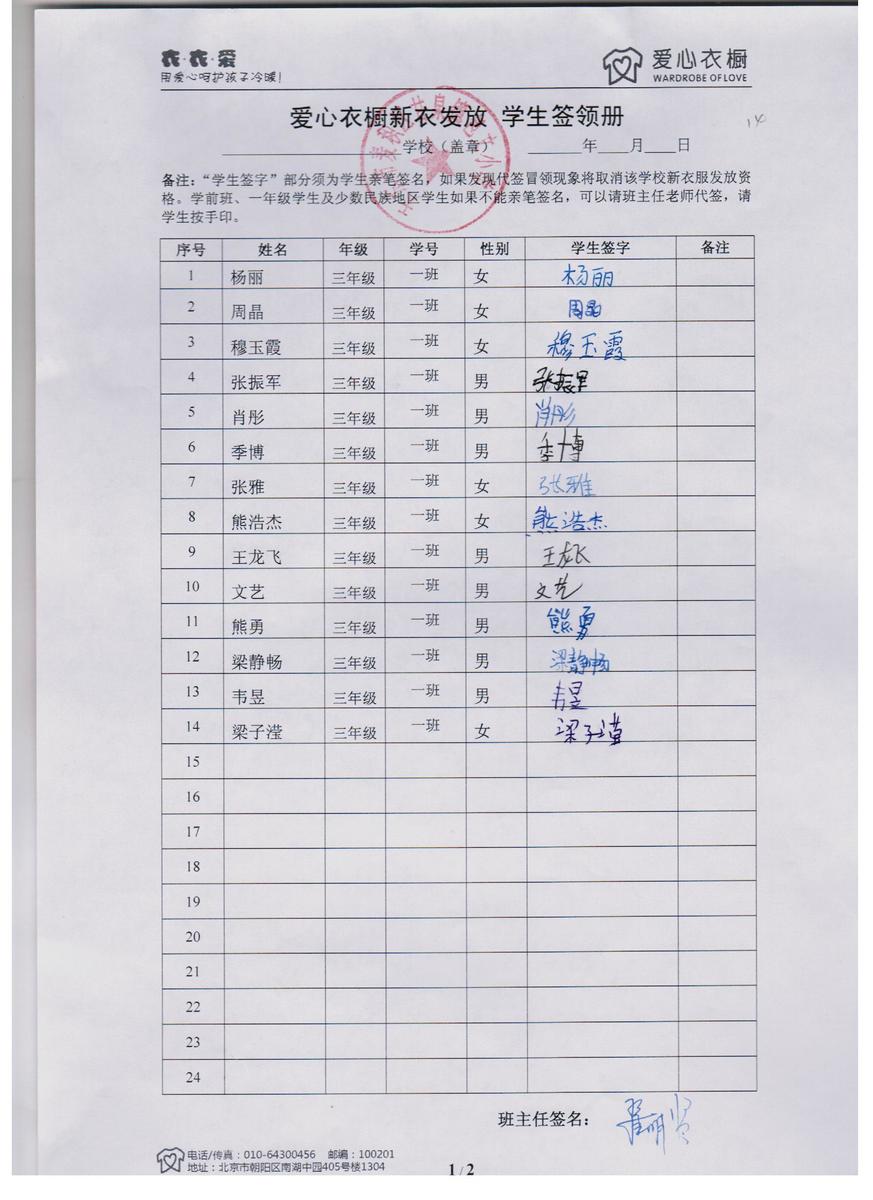 衣·衣·爱
用爱心呵护孩子冷暖!
爱心衣橱
WARDROBE OF LOVE
爱心衣橱新衣发放 学生签领册
14
学校(盖章) 年 月 日
备注:“学生签字”部分须为学生亲笔签名,如果发现代签冒领现象将取消该学校新衣服发放资
格。学前班、一年级学生及少数民族地区学生如果不能亲笔签名,可以请班主任老师代签,请
学生按手印。
序号 姓名 年级 学号 性别 学生签字 备注
1 杨丽 三年级 一班 女 杨丽
2 周晶 三年级 一班 女 周晶
3 穆玉霞 三年级 一班 女 穆玉霞
4 张振军 三年级 一班 男 张振军
5 肖彤 三年级 一班 男 肖彤
6 季博 三年级 一班 男 季博
7 张雅 三年级 一班 女 张雅
8 熊浩杰 三年级 一班 女 熊浩杰
9 王龙飞 三年级 一班 男 王龙飞
10 文艺 三年级 一班 男 文艺
11 熊勇 三年级 一班 男 熊勇
12 梁静畅 三年级 一班 男 梁静畅
13 韦昱 三年级 一班 男 韦昱
14 梁子滢 三年级 一班 女 梁子滢
15
16
17
18
19
20
21
22
23
24
班主任签名: 翟明贤
电话/传真:010-64300456 邮编:100201
地址:北京市朝阳区南湖中园405号楼1304
1 / 2